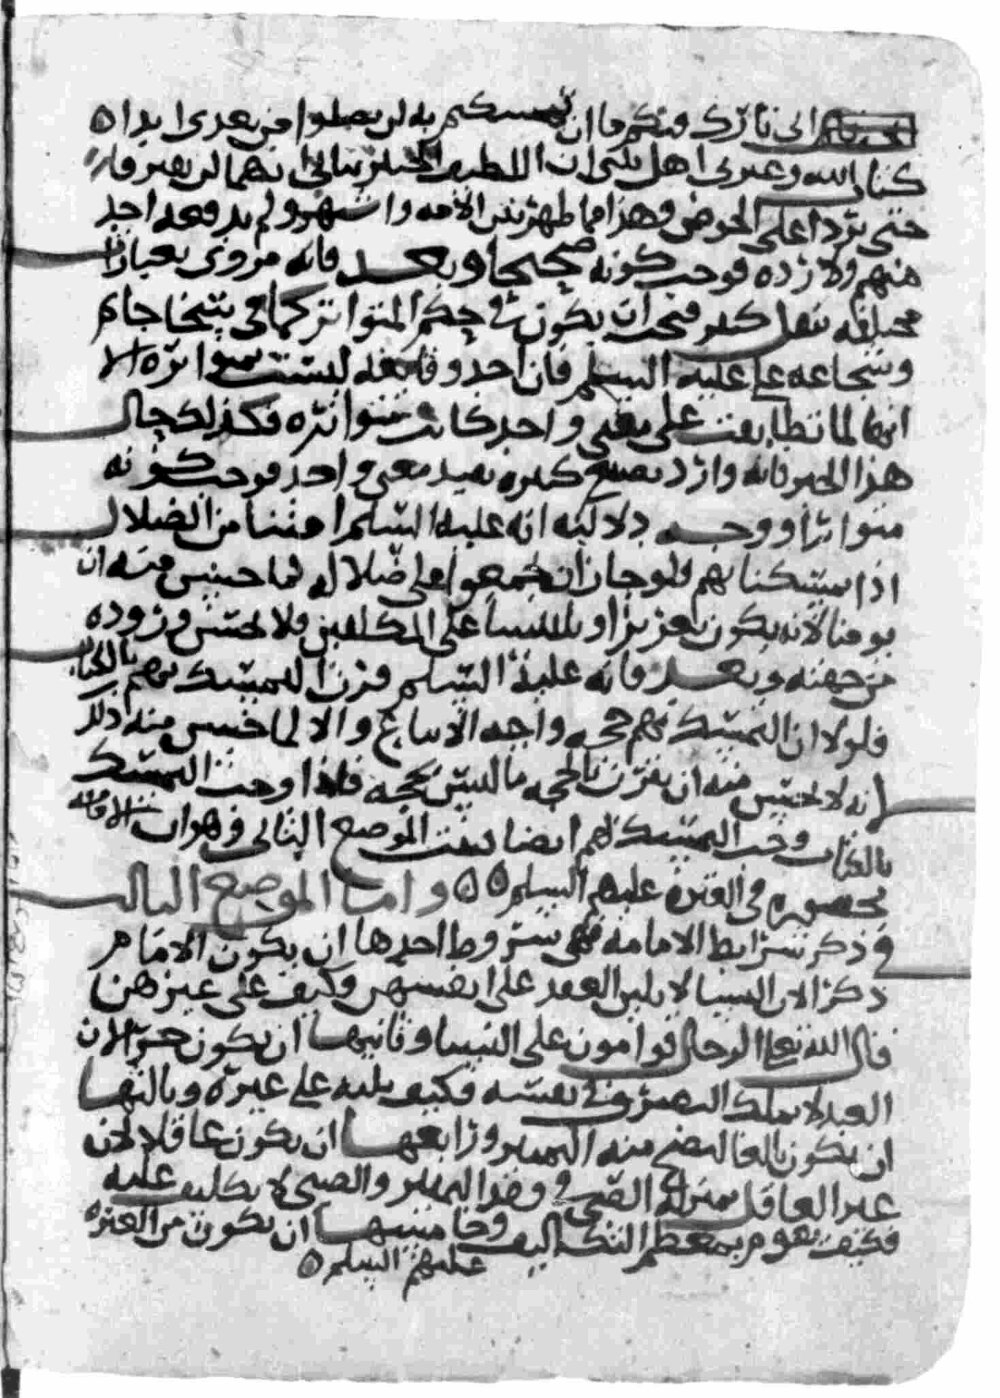 اني تارك فيكم ما ان تمسكتم به لن تضلوا من بعدي ابدا ه
كتاب الله وعترتي اهل بيتي ان اللطيف الخبير نبأني انهما لن يفترقا
حتى يردا على الحوض وهذا مما ظهر بين الامه واشتهر ولم يدفعه احد
منهم ولا رده فوجب كونه صحيحا وبعد فانه مروي بعبارات
مختلفه بنقل كثير فيجب ان يكون في حكم المتواتر كما في سخا حاتم
وشجاعه علي عليه السلم فان احد وقائعه ليست متواتره الا
انها لما تطابقت على معنى واحد كانت متواتره فكذلك حال
هذا الخبر فانه وارد بصيغ كثيره تفيد معنى واحد فوجب كونه
متواترا ووجه دلالته انه عليه السلم امننا من الضلال
اذا تمسكنا بهم فلو جاز ان يجمعوا على ضلال لما حسن منه ان
يومنا لانه يكون تغريرا وتلبيسا على المكلفين ولا يحسن وروده
من جهته وبعد فانه عليه السلم قرن التمسك بهم بالكتاب
فلولا ان التمسك بهم حجه واجبه الاتباع والا لما حسن منه ذلك
لانه لا يحسن منه ان يقرن بالحجه ما ليس بحجه فاذا وجب التمسك
بالكتاب وجب التمسك بهم ايضا فثبت الموضع الثاني وهو ان الامامه
محصوره في العتره عليهم السلم ه ه واما الموضع الثالث
في ذكر شرائط الامامه فهي شروط احدها ان يكون الامام
ذكرا لان النسا لا يلين العقد على انفسهن وكيف على غيرهن
قال الله تعالى الرجال قوامون على النسا وثانيها ان يكون حرا لان
العبد لا يملك التصرف في نفسه فكيف يليه على غيره وثالثها
ان يكون بالغا ليصح منه التمييز ورابعها ان يكون عاقلا لان
غير العاقل بمنزلة الصبي في فقد التمييز والصبي لا تكليف عليه
فكيف يقوم بمعظم التكاليف وخامسها ان يكون من العتره
عليهم السلم ه